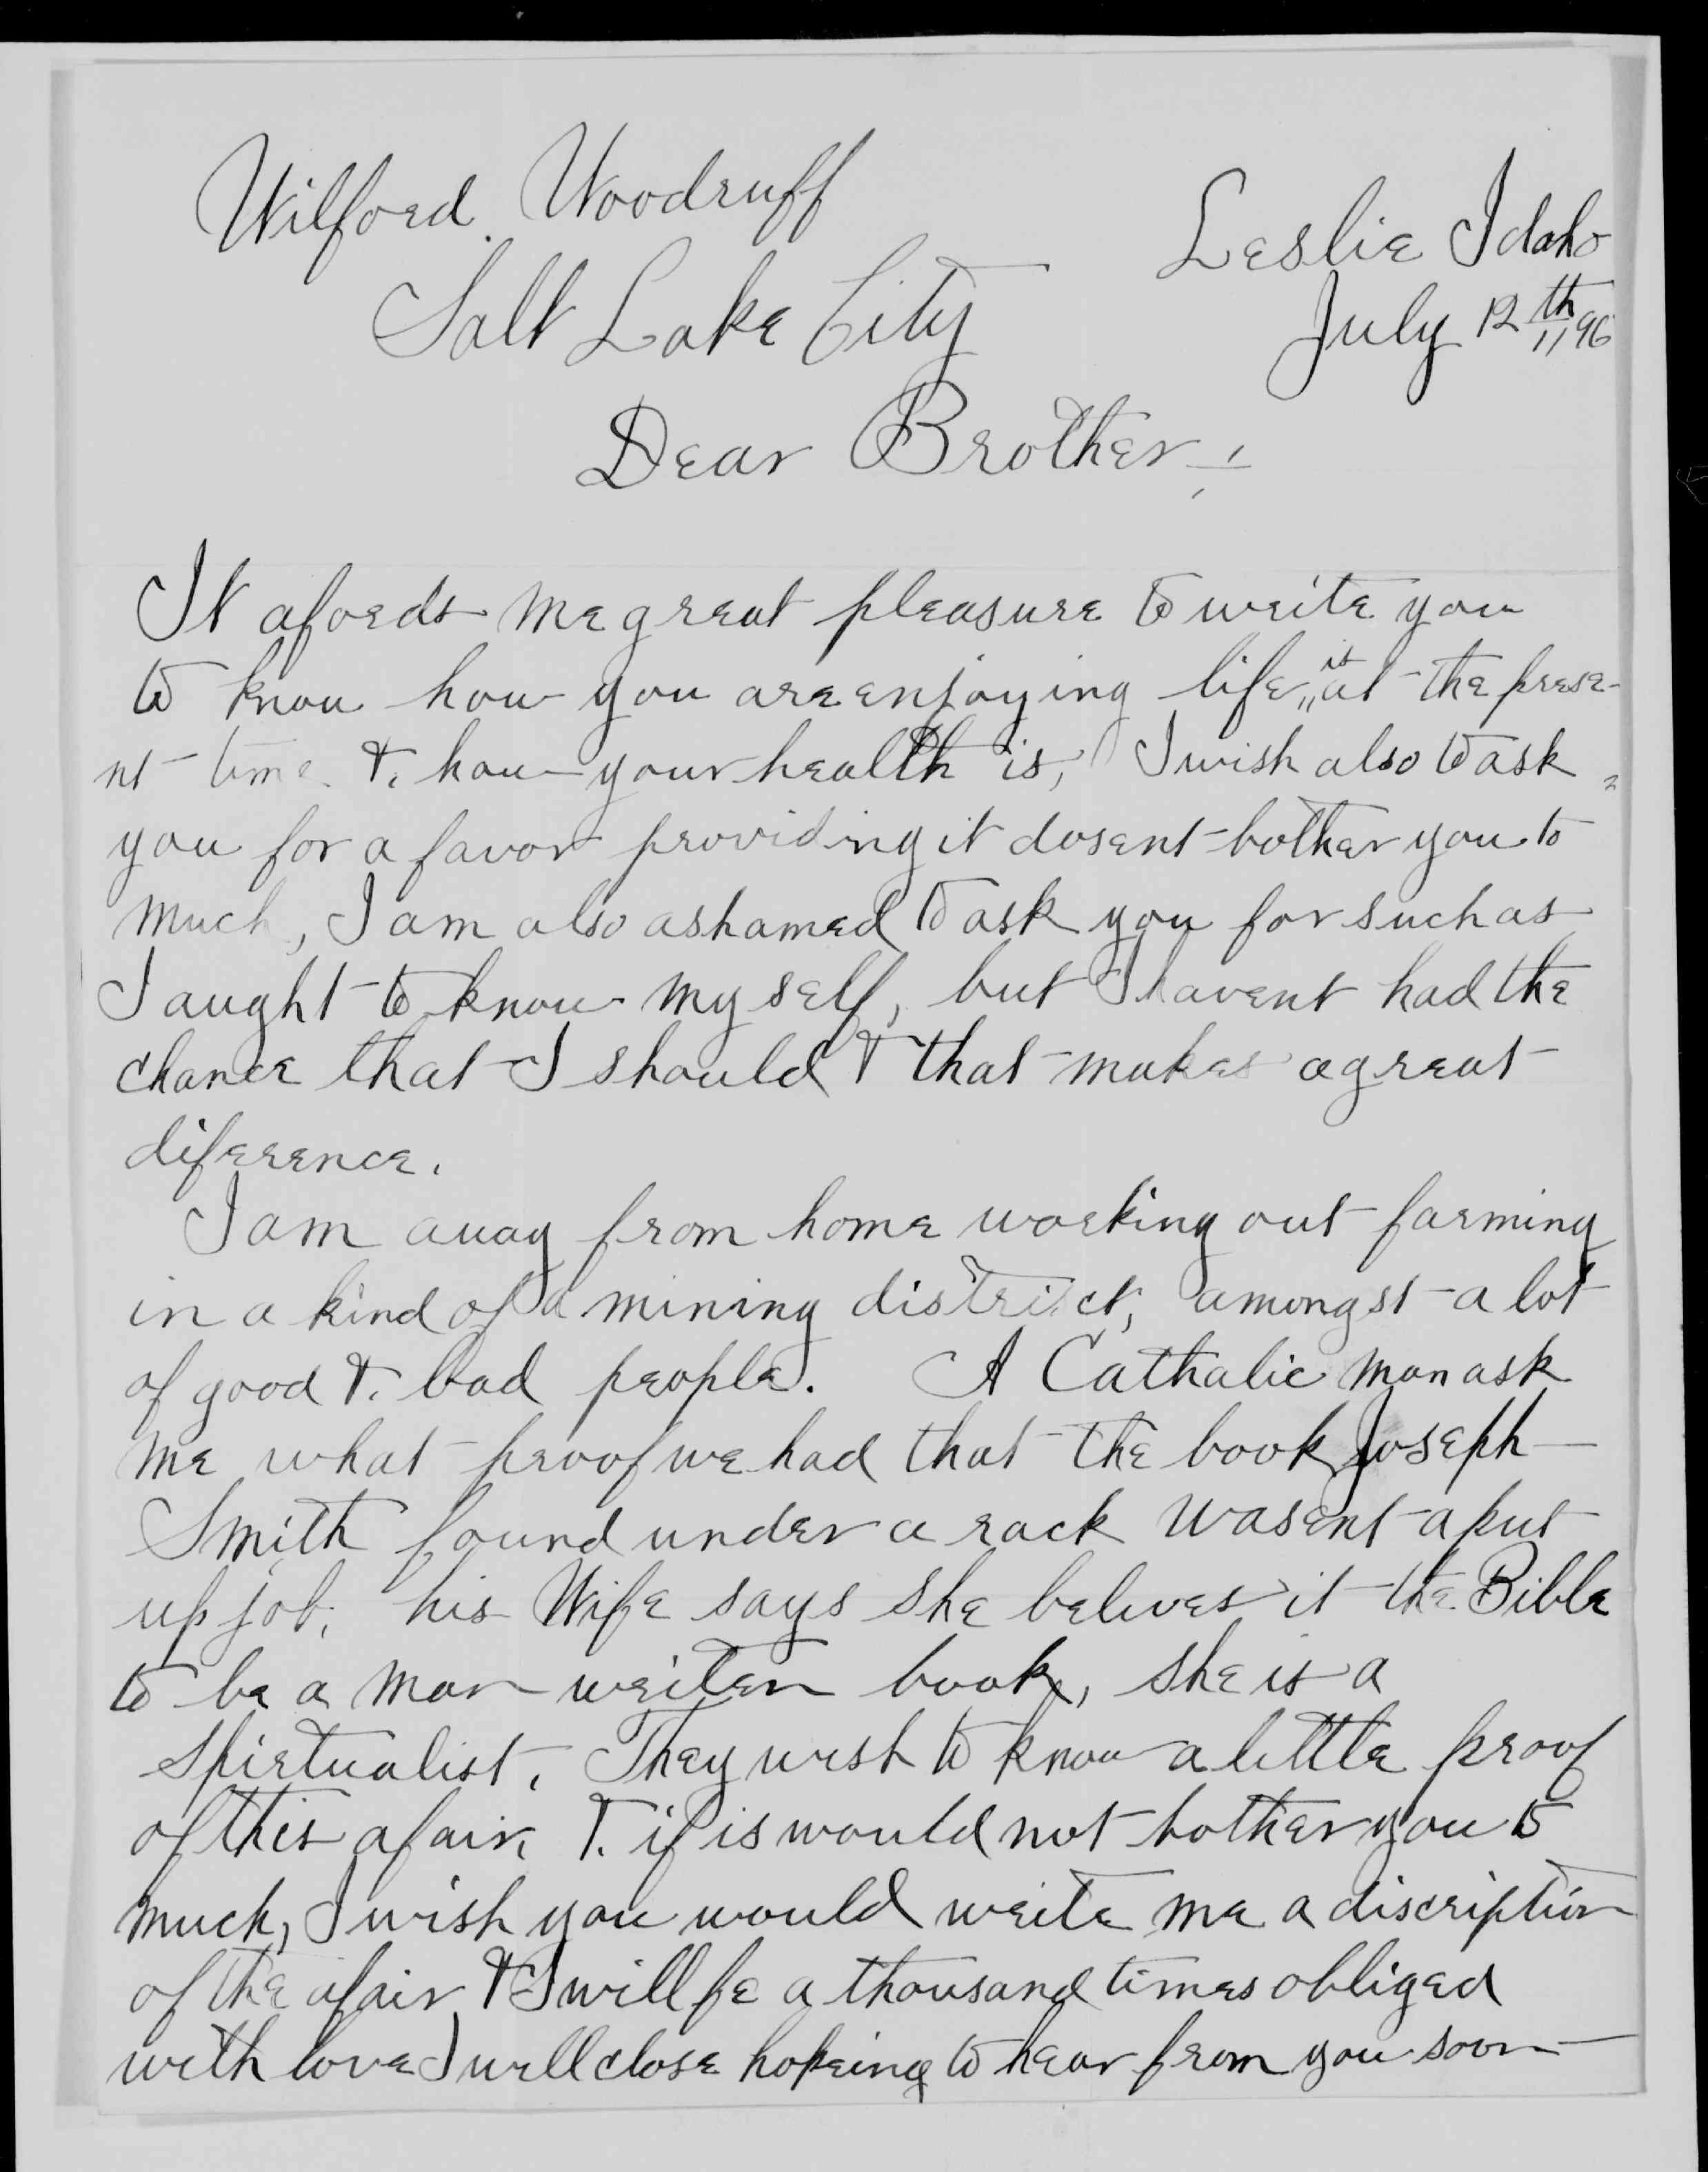 Wilford. Woodruff
Leslie Idaho
Salt Lake City
July 12th " 96
Dear Brother :
It afords me great pleasure to write you
to know how you are enjoying life, is at the prese-
nt time & how your health is, I wish also to ask
you for a favor providing it dosent bother you to
much, I am also ashamed to ask you for such as
I aught to know my self, but I havent had the
chance that I should & that makes a great
diference.
I am away from home working out farming
in a kind of a mining district, amongst a lot
of good &. bad people. A Cathalic man ask
me what proof we had that the book Joseph
Smith found under a rock wasent a put
up job, his Wife says she belives it the Bible
to be a man writen book, she is a
Spirtualist. They wish to know a little proof
of this afair, &. if is would not bother you to
much, I wish you would write me a discription
of the afair & I will be a thousand times obliged
with love I will close hopeing to hear from you soon